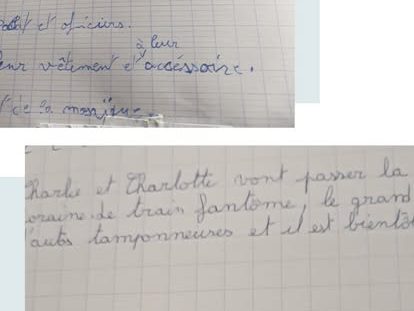 et officiers.
à leur
vêtement et accéssoire.
de la musique
Charlie et Charlotte vont passer la
de train fantôme, le grand
autos tamponneuses et il est bientôt